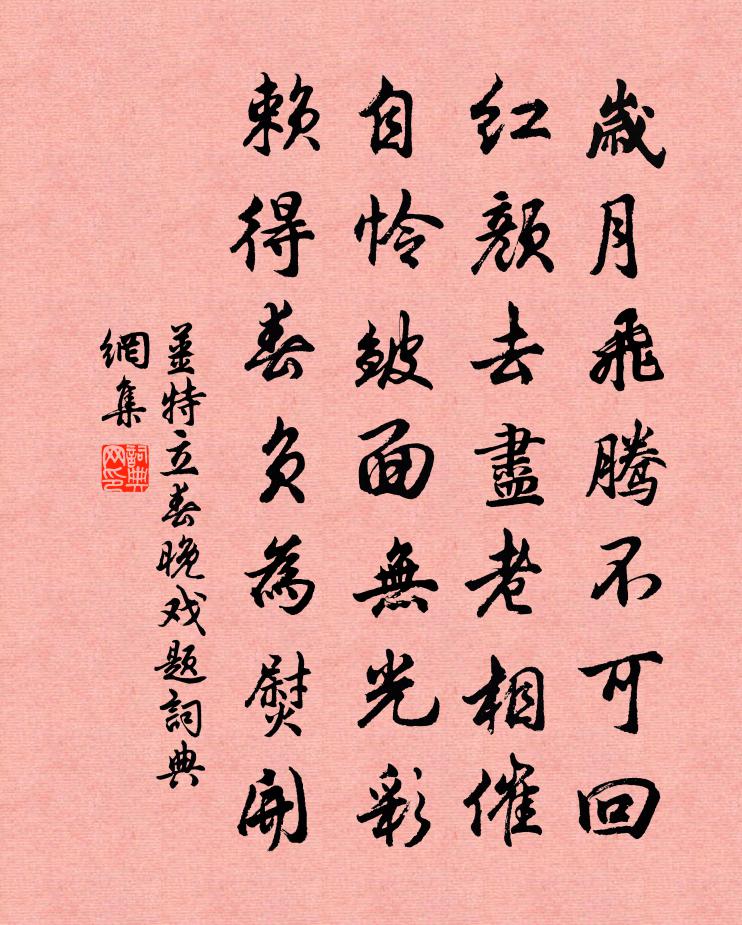 歲月飛騰不可回
紅顏去盡老相催
自憐皺面無光彩
賴得春負為熨開
姜特立春晚戏題詞典
網集
詞典
网印